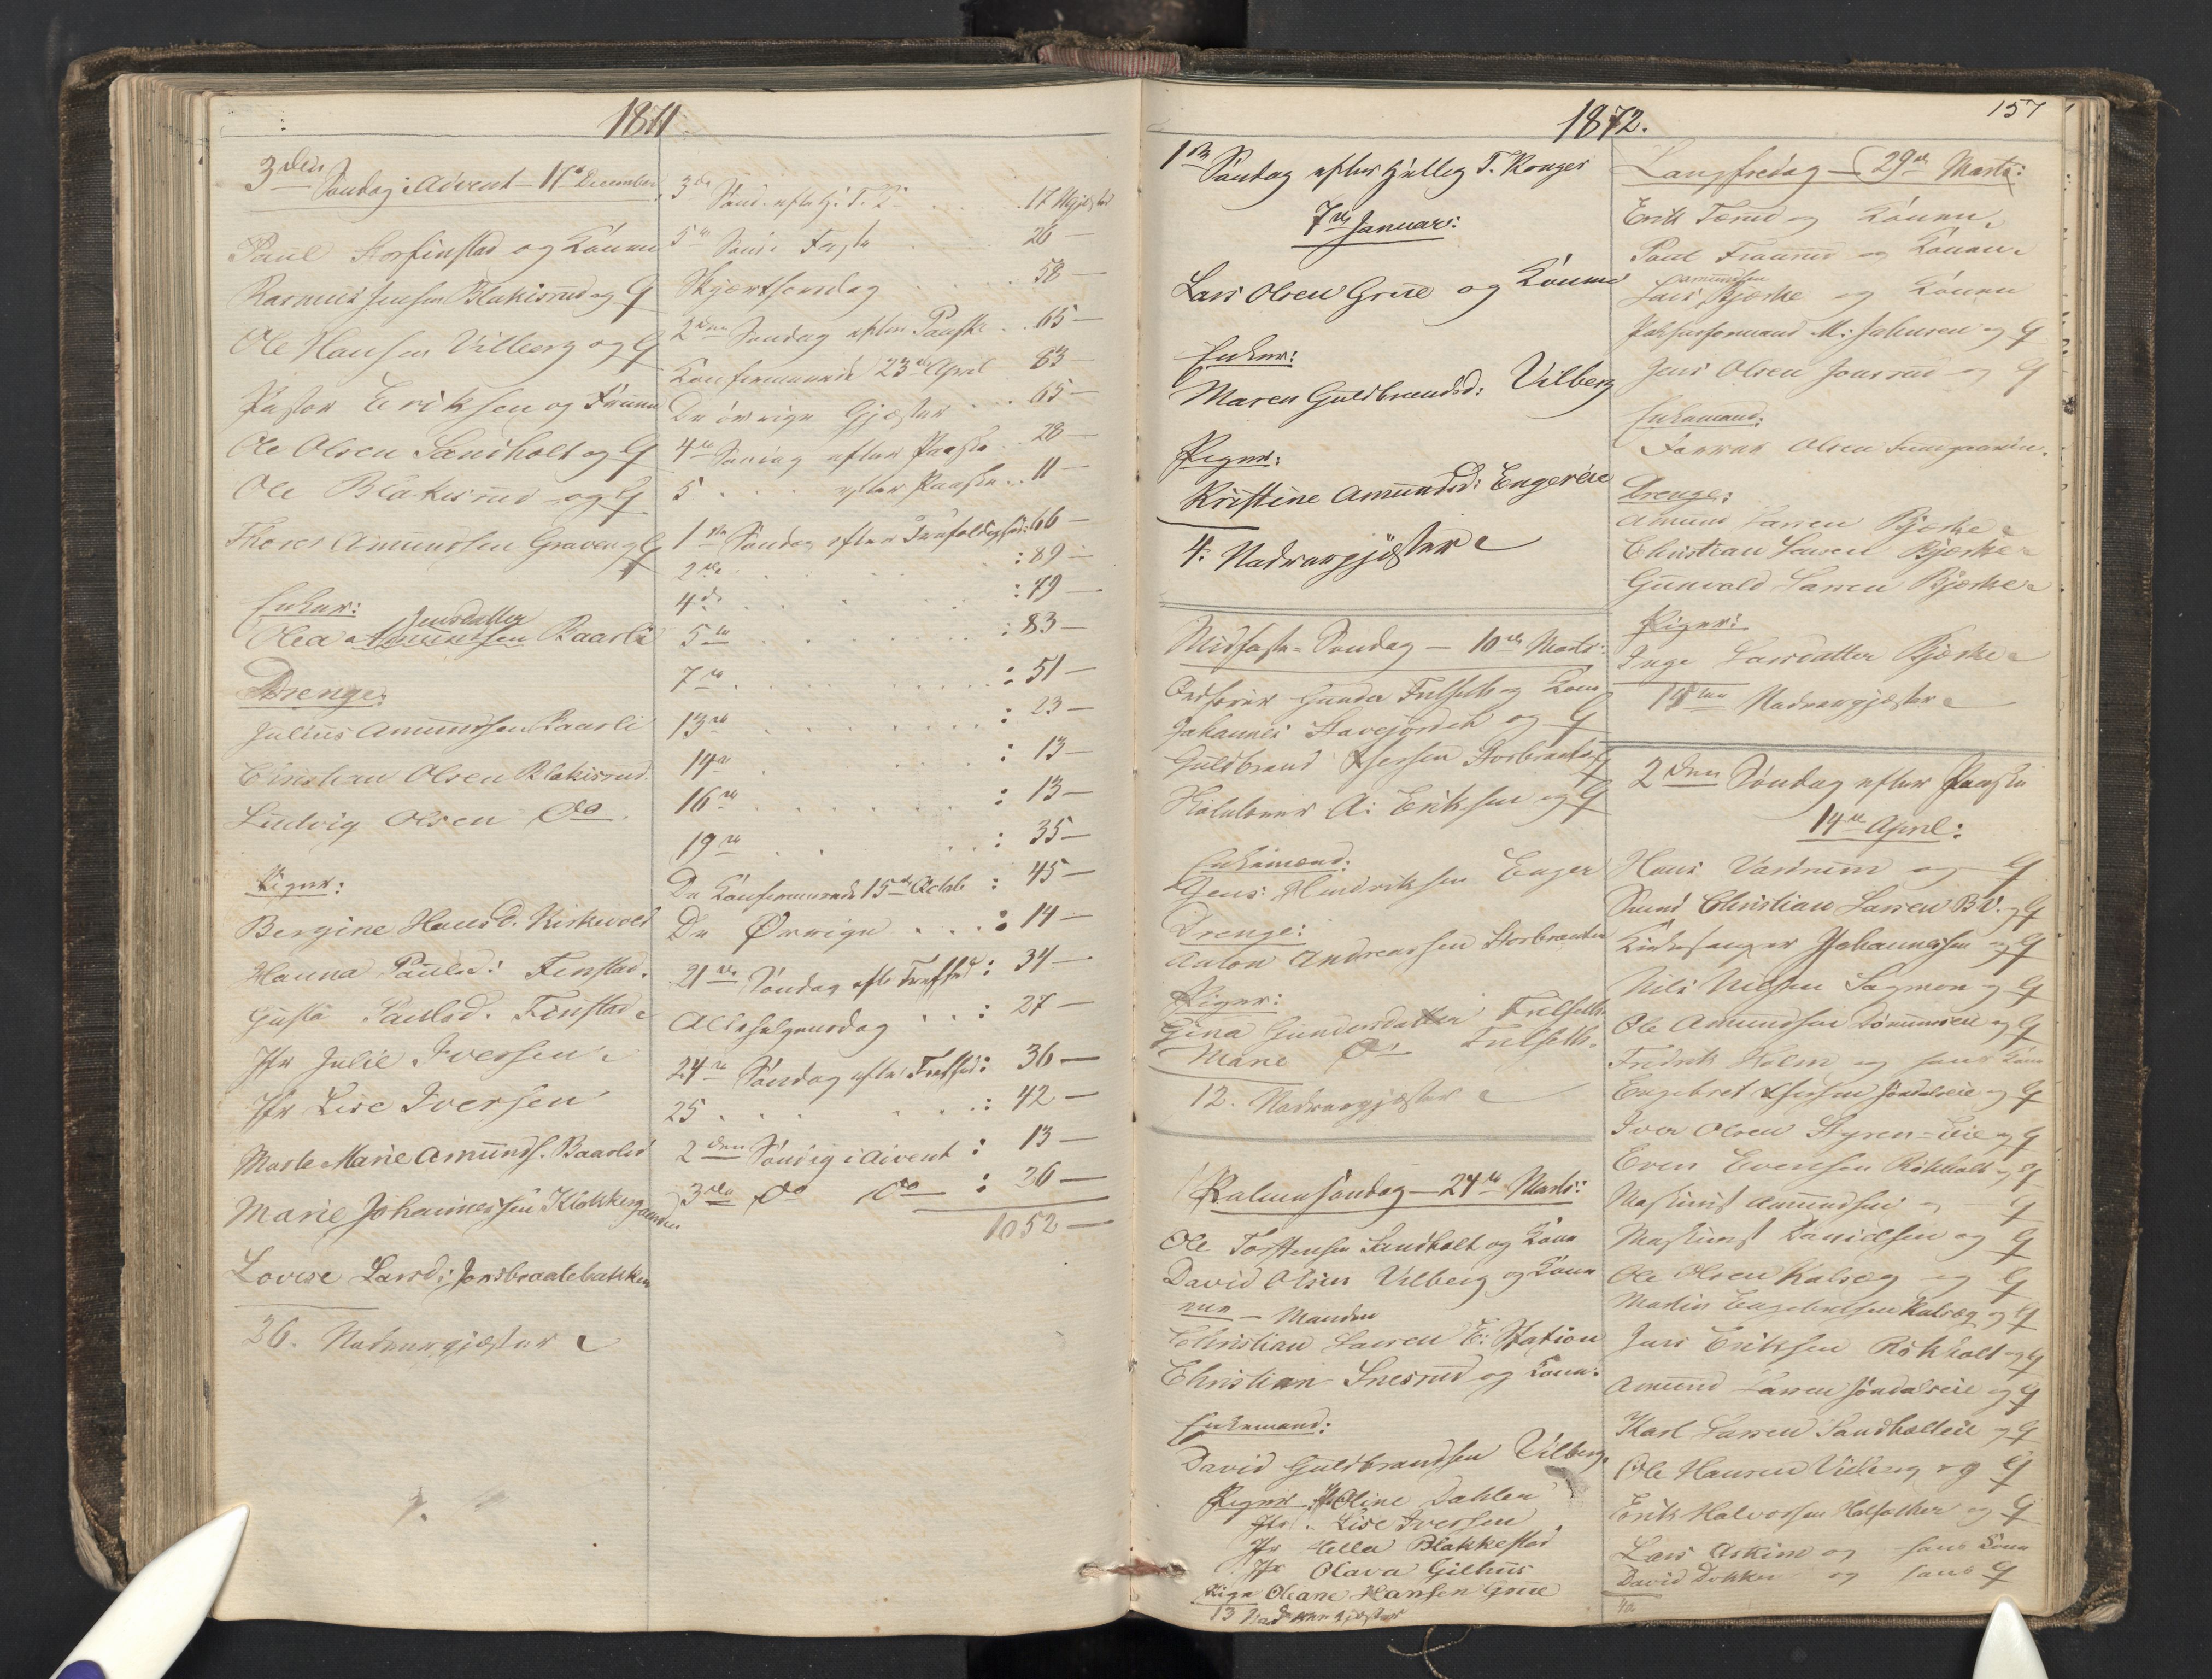 1871
3den Søndag i Advent - 17de December
Paul Korfinstad og Konen
Rasmus Jensen Blakisrud og G
Ole Hansen Vilberg og G
Pastor Eriksen og Frue
Ole Olsen Sandholt og G
Ole Blakisrud og G
Thorer Amundsen Graven og G
Enker:
Jensdatter
Olea Amundsen Baarli
Drenge:
Julius Amundsen Baarli
Christian Olsen Blakisrud.
Ludvig Olsen do.
Piger:
Bergine Hansd. Kirkevold
Hanna Paulsd: Finstad.
Gusta Paulsd. Finstad
Jfr Julie Iversen
Jfr Lise Iversen
Marte Marie Amunds. Baarlid
Marie Johannessen Klokkergaarden
Lovise Larsd: Jonsbraatebakken
36. Nadvergjæster
3de Sønd. efter H. T. K. . . . 17 Ngjæster
5te Sønd. Faste 26 —
Skjærthorsdag . . . 58 —
2den Søndag efter Paaske . . 65 —
Konfirmerede 23de April 83 —
De øvrige Gjæster . . . 65 —
4de Søndag efter Paaske . . 28 —
5 . . . efter Paaske . . 11 —
1ste Søndag efter Trefoldighed: 66 —
2de . . . : 89 —
4de . . . : 79 —
5te . . . : 83 —
7de . . . : 51 —
13de . . . : 23 —
14de . . . : 13 —
16de . . . : 13 —
19de . . . : 35 —
De Konfirmerede 15de Octob : 45 —
De Øvrige . . . : 14 —
21de Søndag efter Trefhed : 34 —
Allehelgensdag . . : 27 —
24de Søndag efter Trefhed : 36 —
25 . . . : 42 —
2den Søndag i Advent : 13 —
3die do do : 36 —
1052 —
1872.
157
1ste Søndag efter Hellig T. Konger
7de Januar:
Lars Olsen Grue og Konen
Enker:
Maren Guldbrandsd: Vilberg
Piger:
Kristine Amundsd: Engereie
4. Nadvergjæster
Midfaste-Søndag — 10de Marts:
Gunder Frilseth og Kone
Johannes Havejordet og G
Guldbrand Andersen Storbraaten og G
A: Eriksen og G
Enkemænd:
Jens Hindriksen Enger
Drenge:
Anton Andreassen Storbraaten
Piger:
Gina Gundersdatter Frilseth
Marie do Frilseth.
12. Nadvergjæster
Palmesøndag — 24de Marts:
Ole Torstensen Sandholt og Kone
David Olsen Vilberg og Kone
— Manden
Christian Larsen F: Station
Christian Snesrud og Kone:
Enkemand:
David Guldbrandsen Vilberg.
Piger Jfr Oline Dahlen
Jfr. Lise Iversen
Jfr Hella Blakkestad
Jfr Olava Gilhus
Pige Oleane Hansen Grue
13 Nadvergjæster
Langfredag — 29de Marts:
Erik Tærud og Konen
Paul Fraurud og Konen
Amundsen
Lars Bjerke og Konen
M: Johnsen og G
Jens Olsen Jonsrud og G
Enkemand:
Olsen
Drenge:
Amund Larsen Bjerke
Christian Larsen Bjerke
Gunvald Larsen Bjerke
Piger:
Inge Larsdatter Bjerke
15ten Nadvergjæster
2den Søndag efter Paaske
14de April:
Hans Vardrum og G
Smed Christian Larsen B V. og G
Kirkesanger Johannessen og G
Nils Nilsen Sagmoen og G
Ole Amundsen og G
Fredrik Holm og hans Kone
Engebret Andersen Søndalseie og G
Iver Olsen Styren-Eie og G
Even Evensen Rökholt og G
Maskinist Amundsen og G
Maskinist Danielsen og G
Ole Olsen Kalsæg og G
Martin Engebretsen Kalsæg og G
Jens Eriksen Rökholt og G
Amund Larsen Söndalseie og G
Karl Larsen Sandholteie og G
Ole Hansen Vilberg og G
Erik Halvorsen og G
Lars Askim og hans Kone
David Dokken og hans G
40